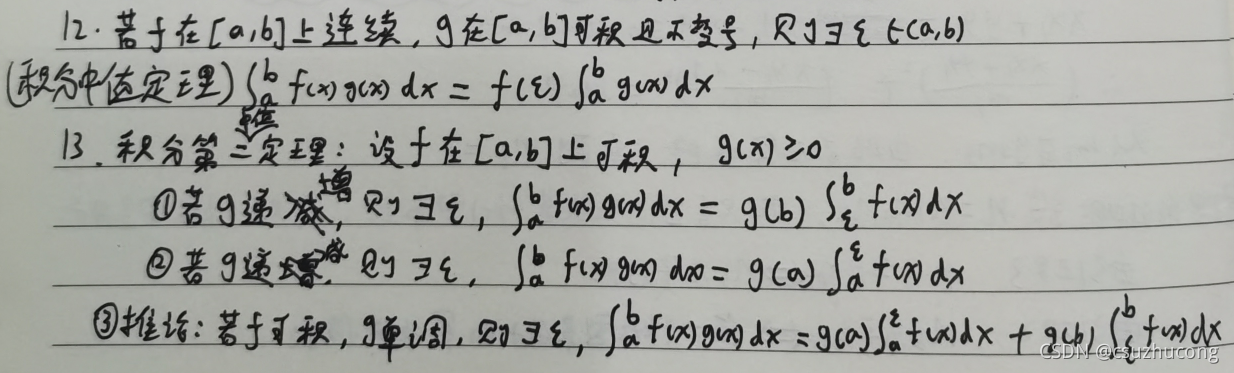 12. 若f在[a,b]上连续, g在[a,b]可积且不变号, 则∃ξ∈(a,b)
(积分中值定理) ∫_a^b f(x)g(x)dx = f(ξ)∫_a^b g(x)dx
13. 积分第二中值定理: 设f在[a,b]上可积, g(x)≥0
①若g递增, 则∃ξ, ∫_a^b f(x)g(x)dx = g(b)∫_ξ^b f(x)dx
②若g递减, 则∃ξ, ∫_a^b f(x)g(x)dx = g(a)∫_a^ξ f(x)dx
③推论: 若f可积, g单调, 则∃ξ, ∫_a^b f(x)g(x)dx = g(a)∫_a^ξ f(x)dx + g(b)∫_ξ^b f(x)dx
CSDN @csuzhucong